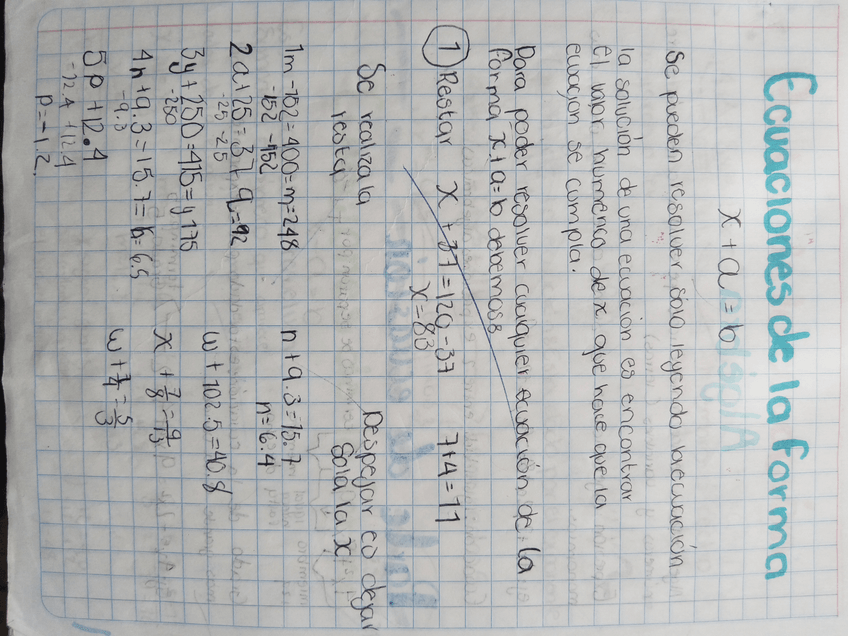 Ecuaciones de la forma
x + a = b
Se pueden resolver sólo leyendo la ecuación
la solución de una ecuación es encontrar
el valor numérico de x que hace que la
ecuación se cumpla.
Para poder resolver cualquier ecuación de la
forma x+a=b debemos:
1 Restar x + 37 = 120 - 37 7+4=11
x=83
Se realiza la
resta
Despejar es dejar
sola la x
1m - 152 = 400 = m = 248
-152 -152
2a + 25 = 37 a = 92
-25 -25
3y + 250 = 415 = y 175
-250
4h + 9.3 = 15.7 = h = 6.5
-9.3
5p + 12.4
-12.4 -12.4
p = -1.2.
n + 9.3 = 15.7
n = 6.4
w + 102.5 = 40.8
x + 7/8 = 9/15
w + 7/4 = 5/3